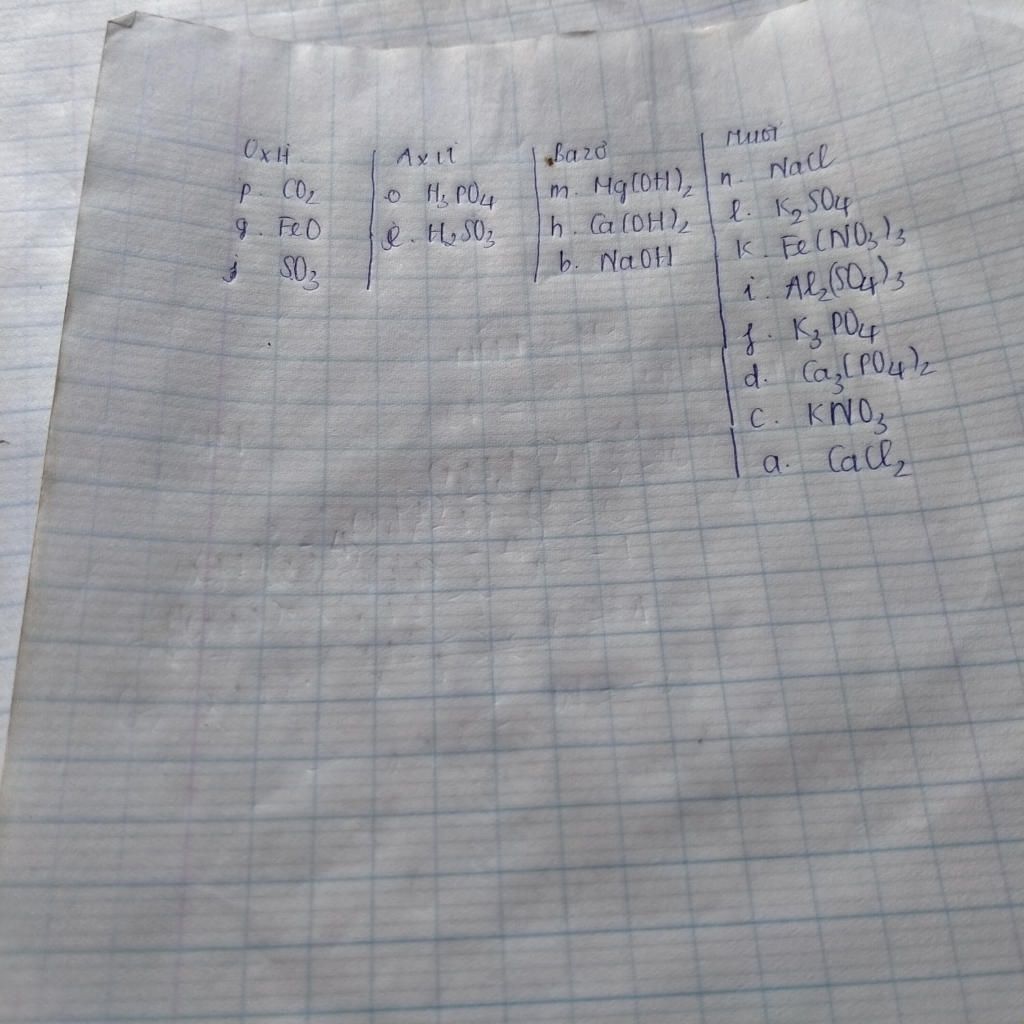 Oxit Axit Bazơ Muối
p. CO2 o H3PO4 m. Mg(OH)2 n. NaCl
g. FeO e. H2SO3 h. Ca(OH)2 l. K2SO4
j SO3 b. NaOH k. Fe(NO3)3
i. Al2(SO4)3
f. K3PO4
d. Ca3(PO4)2
c. KNO3
a. CaCl2